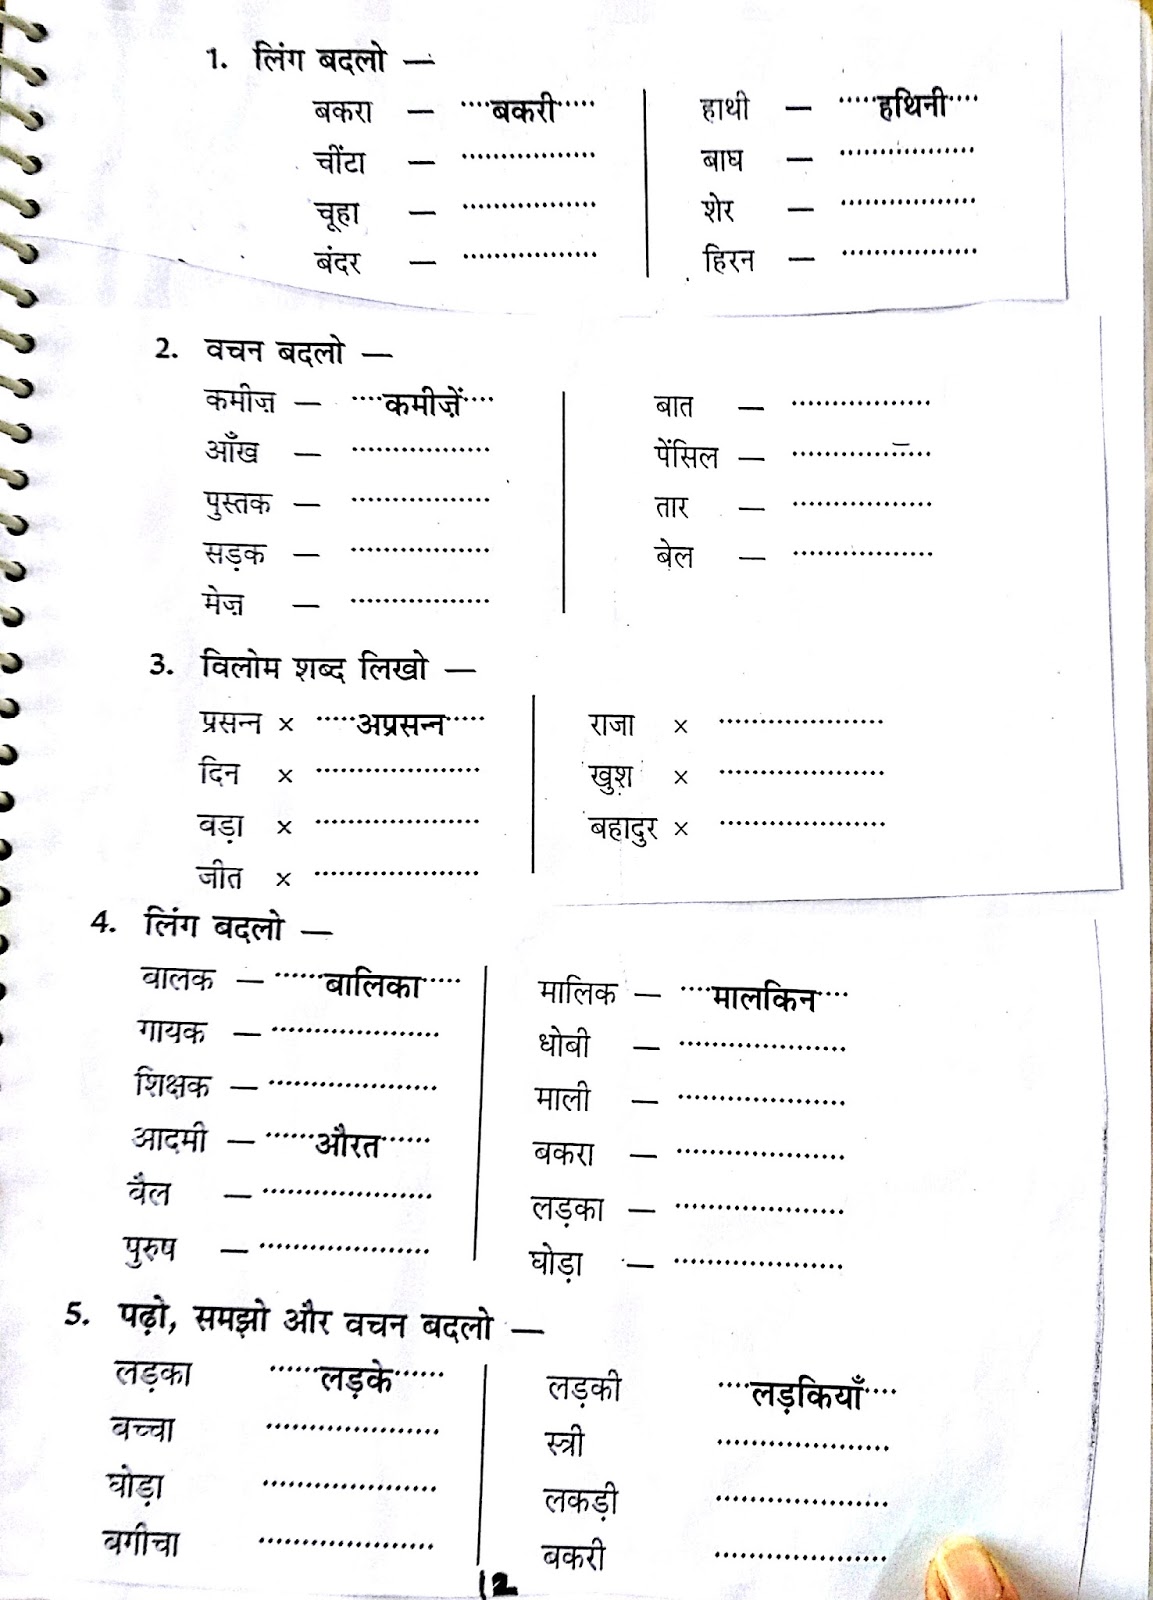 1. लिंग बदलो —
बकरा — ....बकरी..... हाथी — .....हथिनी....
चींटा — ................. बाघ — .................
चूहा — ................. शेर — .................
बंदर — ................. हिरन — .................
2. वचन बदलो —
कमीज़ — ....कमीज़ें.... बात — .................
आँख — ................. पेंसिल — .................
पुस्तक — ................. तार — .................
सड़क — ................. बेल — .................
मेज़ — .................
3. विलोम शब्द लिखो —
प्रसन्न × .....अप्रसन्न..... राजा × .....................
दिन × ..................... खुश × .....................
बड़ा × ..................... बहादुर × .....................
जीत × .....................
4. लिंग बदलो —
बालक — ......बालिका..... मालिक — ....मालकिन....
गायक — ..................... धोबी — .....................
शिक्षक — ..................... माली — .....................
आदमी — ......औरत...... बकरा — .....................
बैल — ..................... लड़का — .....................
पुरुष — ..................... घोड़ा — .....................
5. पढ़ो, समझो और वचन बदलो —
लड़का ......लड़के...... लड़की ....लड़कियाँ....
बच्चा ..................... स्त्री .....................
घोड़ा ..................... लकड़ी .....................
बगीचा ..................... बकरी .....................
12